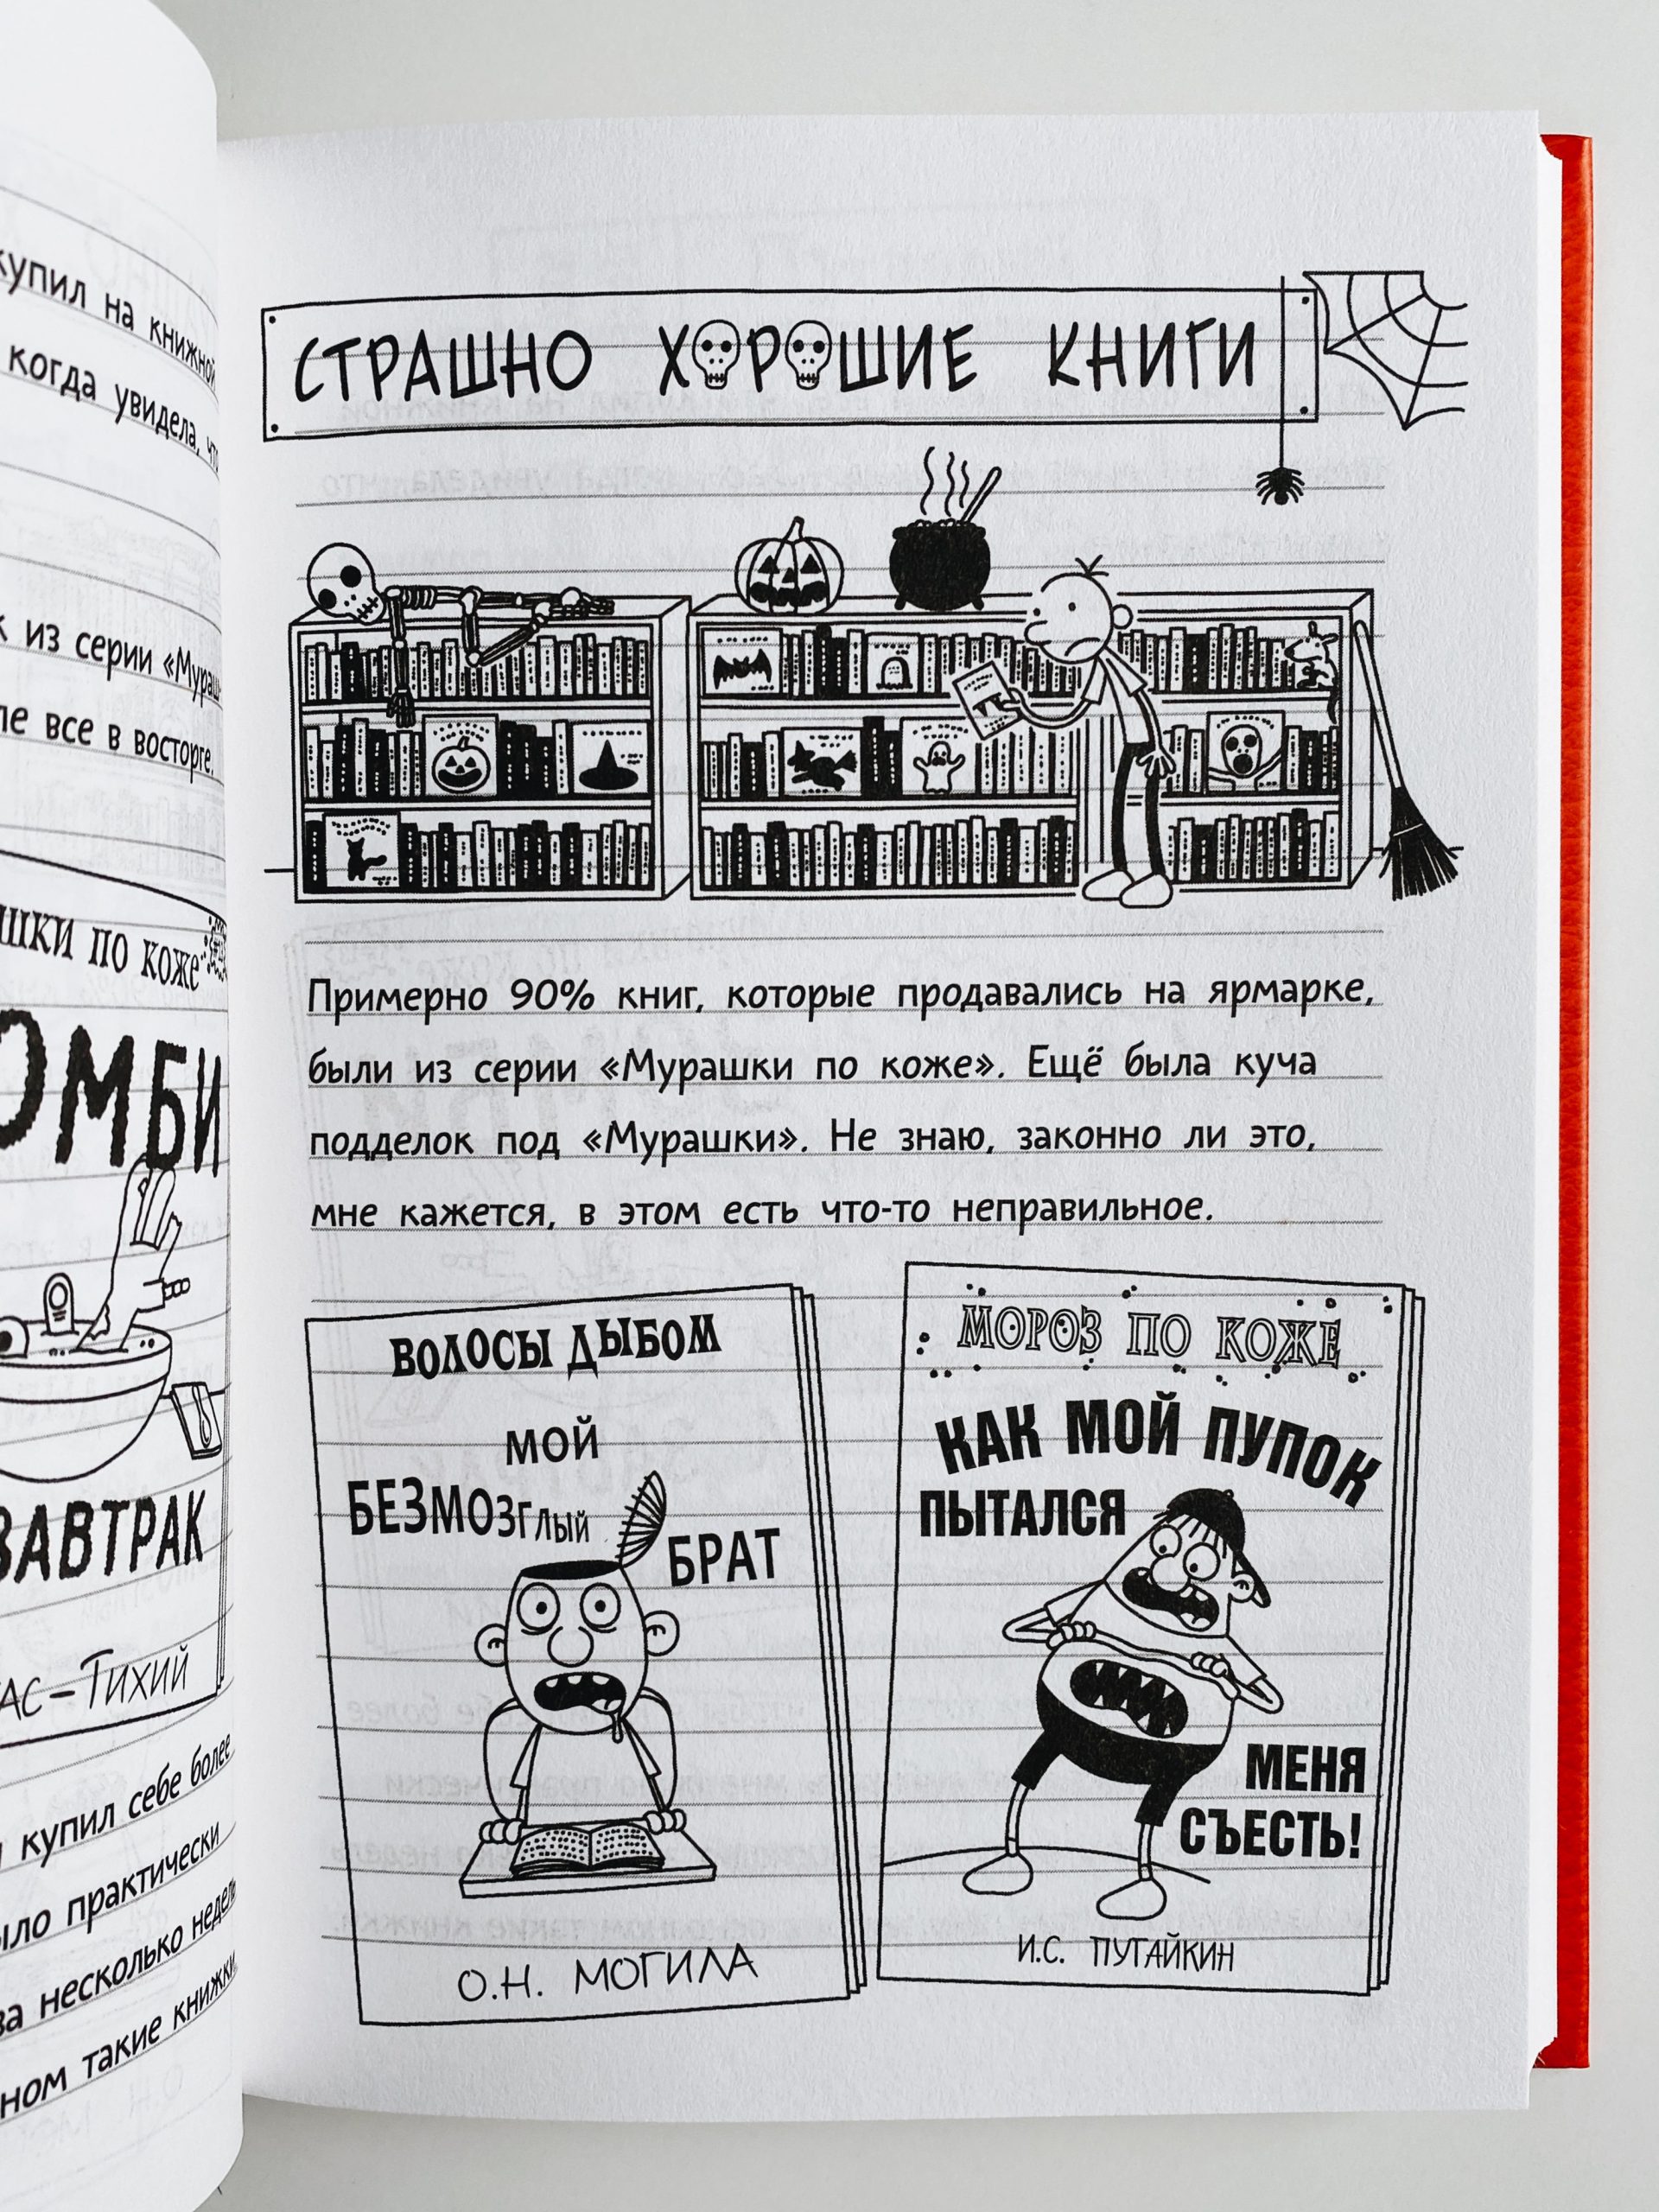 купил на книжной
когда увидела, что
из серии «Мураш
все в восторге.
ПО КОЖЕ
ЗАВТРАК
ТИХИЙ
купил себе более
практически
несколько недель
такие книжки
СТРАШНО ХОРОШИЕ КНИГИ
Примерно 90% книг, которые продавались на ярмарке,
были из серии «Мурашки по коже». Ещё была куча
подделок под «Мурашки». Не знаю, законно ли это,
мне кажется, в этом есть что-то неправильное.
ВОЛОСЫ ДЫБОМ
МОЙ
БЕЗМОЗГЛЫЙ
БРАТ
О.Н. МОГИЛА
МОРОЗ ПО КОЖЕ
КАК МОЙ ПУПОК
ПЫТАЛСЯ
МЕНЯ
СЪЕСТЬ!
И.С. ПУГАЙКИН